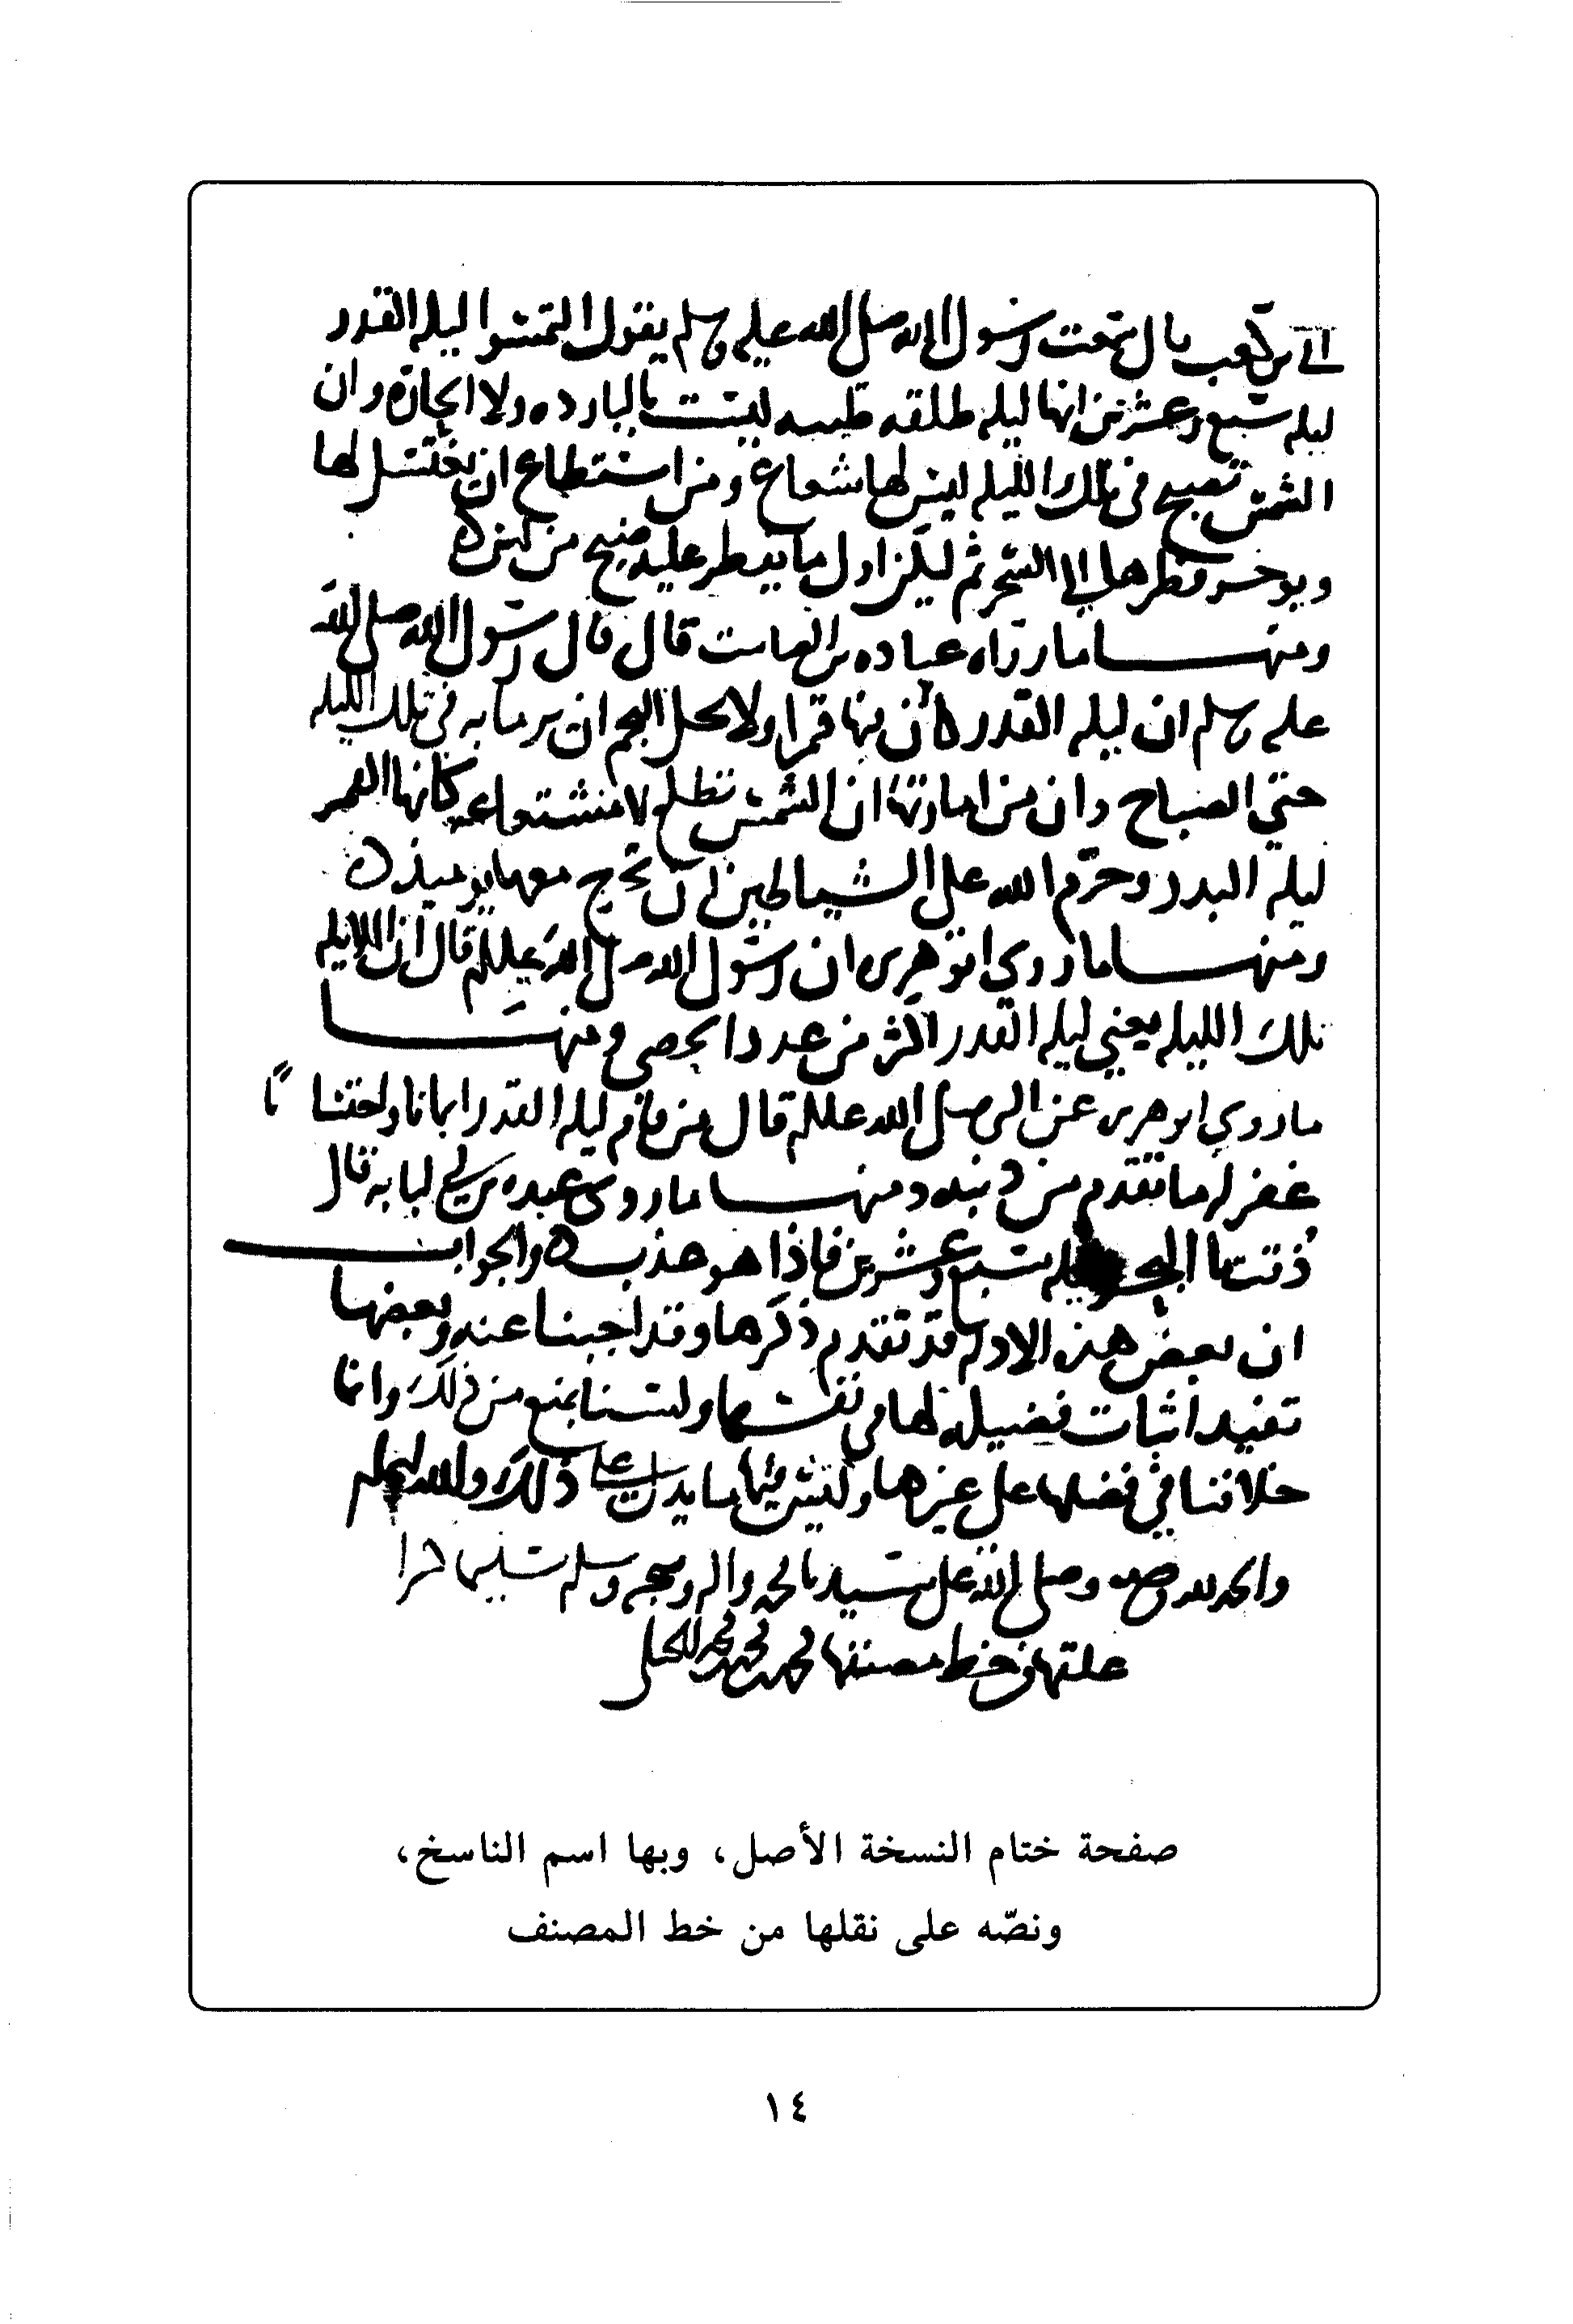 ابي بن كعب قال سمعت رسول الله صلى الله عليه وسلم يقول التمسوا ليله القدر
ليله سبع وعشرين انها ليله طلقه طيبه ليست بالبارده ولا الحاره وان
الشمس تصبح في تلك الليله ليس لها شعاع ومن استطاع ان يغتسل لها
ويوخر فطرها الى السحر ثم ليكن اول ما يفطر عليه
ومنها ما رواه عباده بن الصامت قال قال رسول الله صلى الله
عليه وسلم ان ليله القدر كان فيها قمرا ولا يحل لنجم ان يرما به في تلك الليله
حتى الصباح وان من امارتها ان الشمس تطلع لا شعاع كانها القمر
ليله البدر وحرم الله على الشياطين ان تخرج معها يوميذ
ومنها ما روي ابو هريره ان رسول الله صلى الله عليه وسلم قال ان الملايكه
تلك الليله يعني ليله القدر اكثر من عدد الحصى ومنها
ما روي ابو هريره عن النبي صلى الله عليه وسلم قال من قام ليله القدر ايمانا واحتسابا
غفر له ما تقدم من ذنبه ومنها ما روى عبده بن ابي لبابه قال
ذقت ما البحر ليله سبع وعشرين فاذا هو عذب والجواب
ان بعض هذه الادله قد تقدم ذكرها وقد اجبنا عنه وبعضها
تفيد اثبات فضيله لها في نفسها ولسنا نمنع من ذلك وانما
خلافنا في فضلها على غيرها وليس فيها ما يدل على ذلك والله اعلم
والحمد لله وحده وصلى الله على سيدنا محمد واله وصحبه وسلم تسليما كثيرا
علقها من خط مصنفها محمد
صفحة ختام النسخة الأصل، وبها اسم الناسخ،
ونصّه على نقلها من خط المصنف
١٤